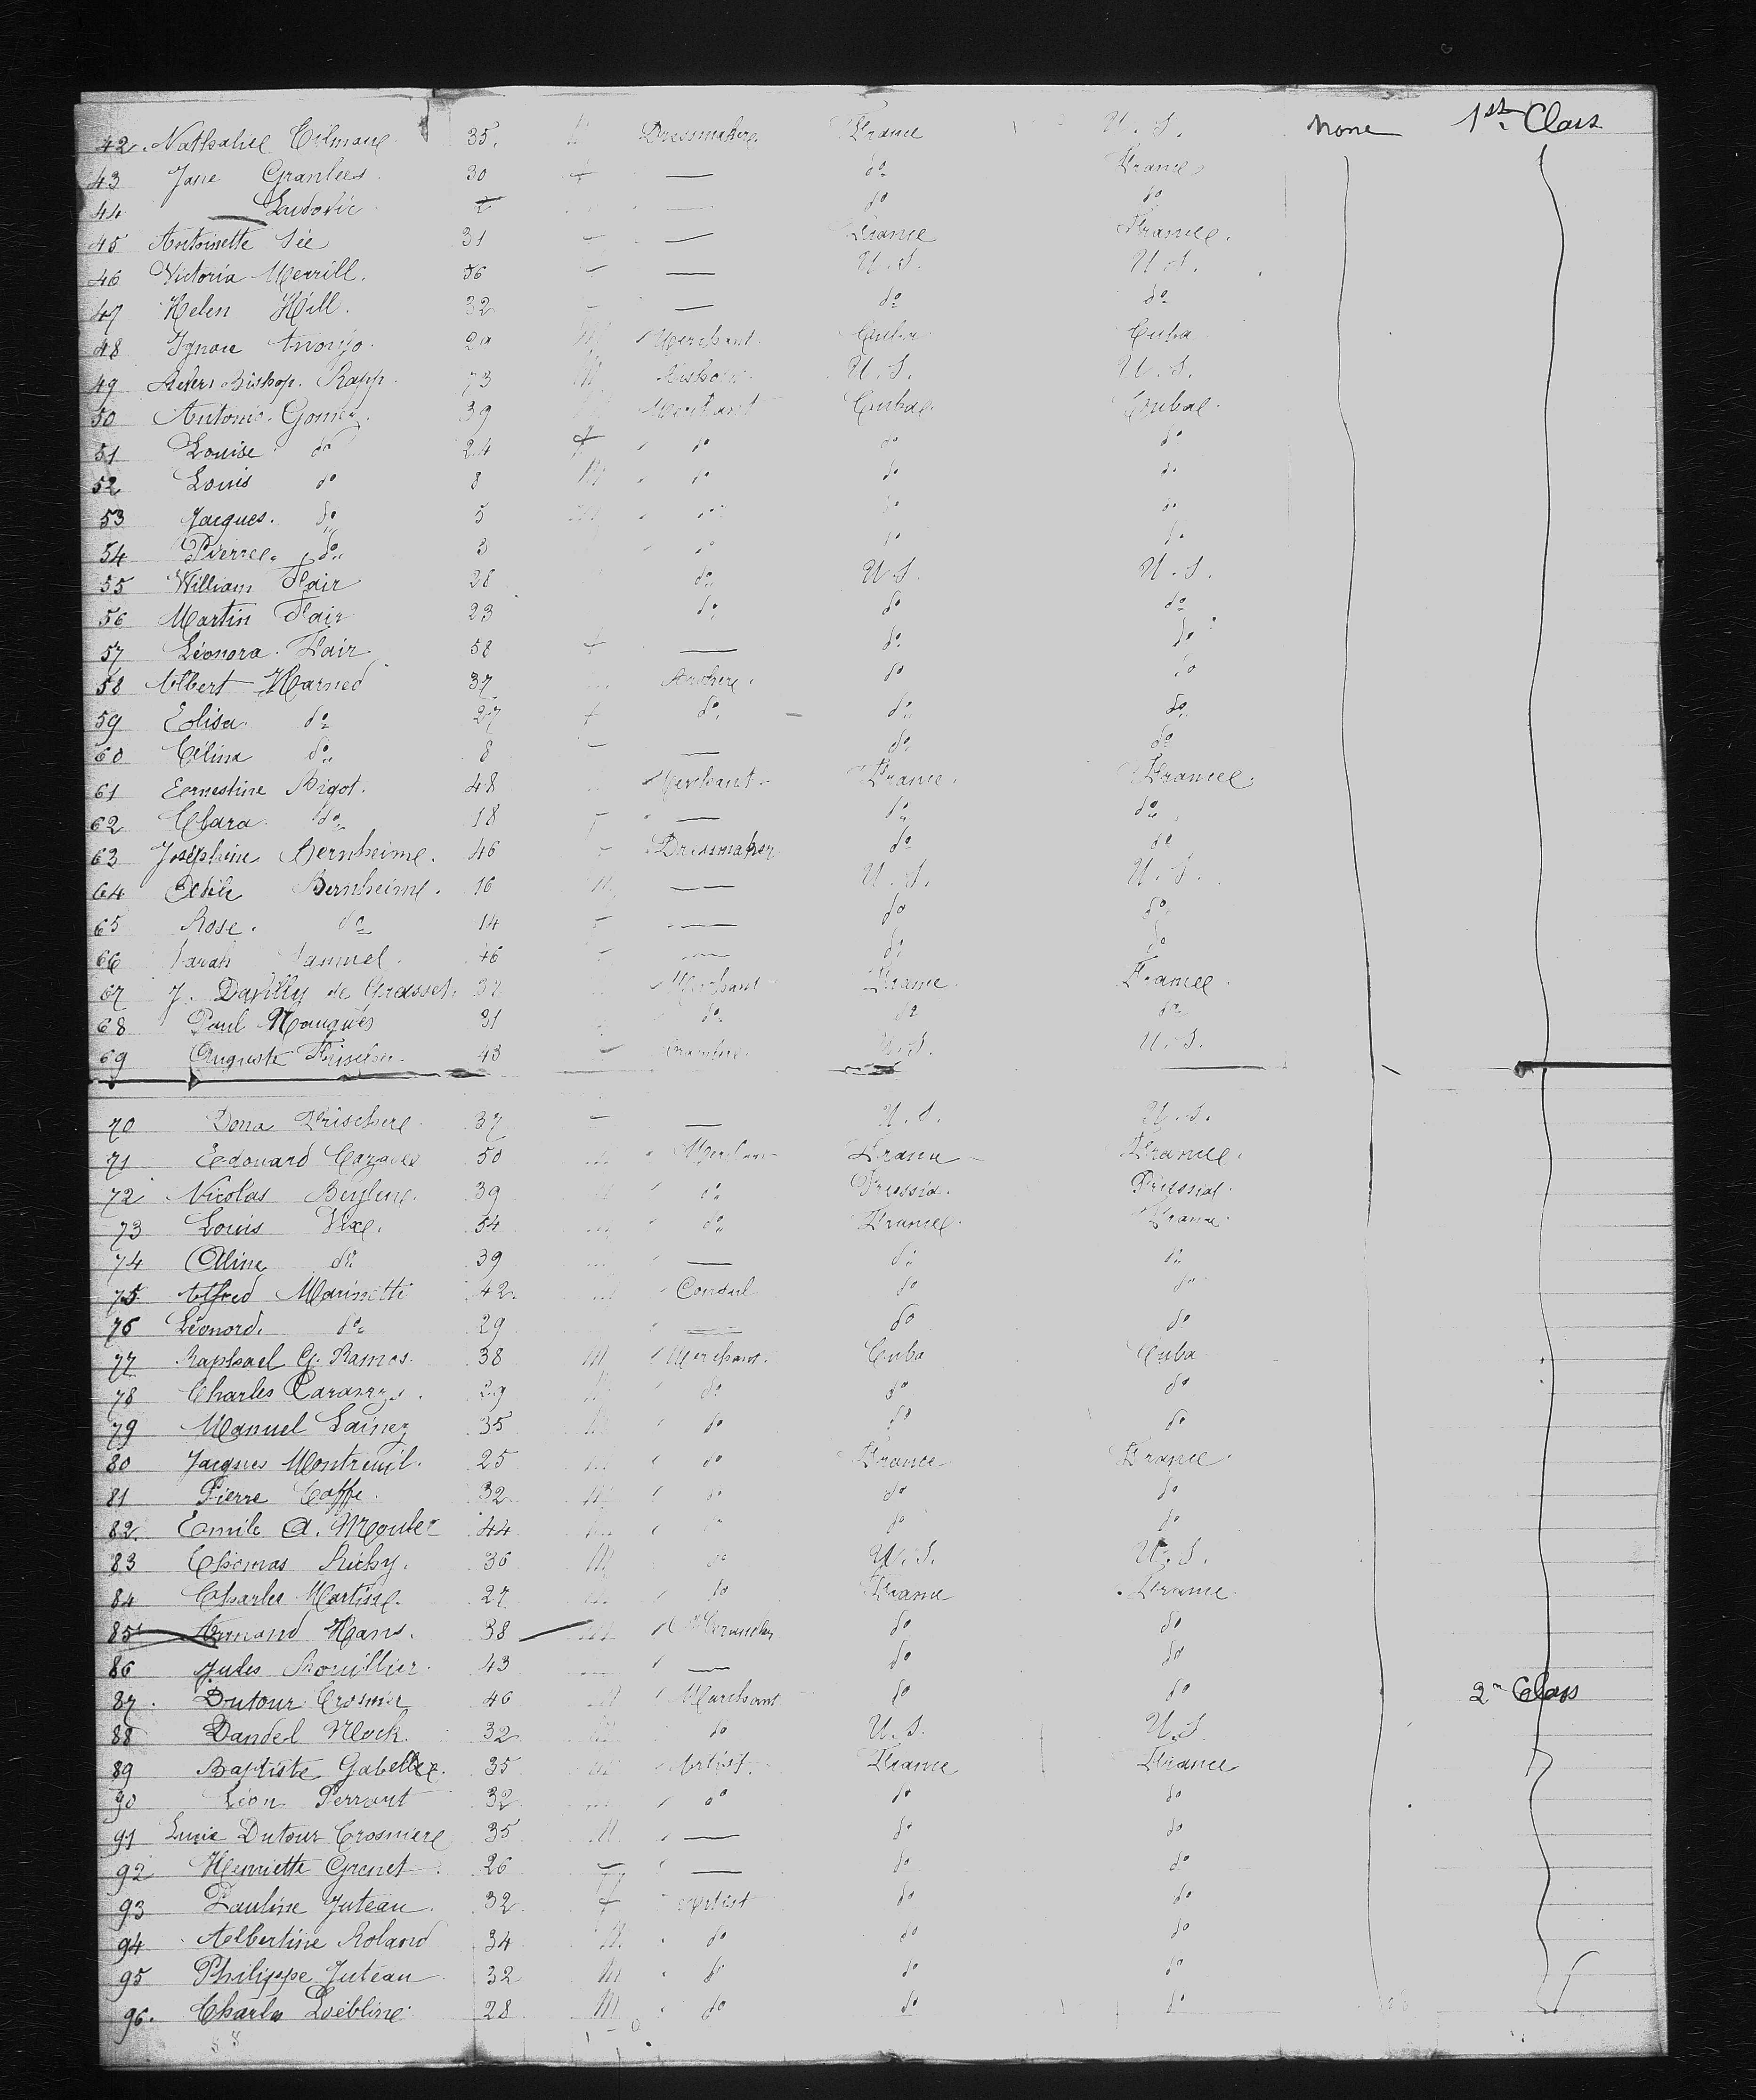 none 1st Class
42. Nathalie Tilmane 35. Dressmaker France U.S.
43 Jane Granlees 30 f — do France
44 — Ludovic — do do
45 Antoinette Sée 31 — — France France.
46 Victoria Merrill. 56 — — U.S. U.S.
47 Helen Hill. 32 — — do do
48 Ignace 29 M Merchant Cuba Cuba
49 Bishop. Rapp. 73 M Bishop U.S. U.S.
50 Antonio Gomez. 39 Merchant Cuba Cuba
51 Louise do 24 f do do do
52 Louis do 8 M do do do
53 Jacques. do 5 do do do
54 Pierre. do 3 do do do
55 William Fair 28 do U.S. U.S.
56 Martin Fair 23 do do do
57 Léonora Fair 58 f — do do
58 Albert Harned 37 do do
59 Elisa do 27 f do do do
60 Célina do 8 — — do do
61 Ernestine Bigot. 48 Merchant France. France.
62 Clara do 18 — — do do
63 Joséphine Bernheime. 46 — Dressmaker do do
64 Bernheime. 16 M — U.S. U.S.
65 Rose. do 14 — — do do
66 Sarah Samuel. 46 — — do do
67 J. Davilly de Grasset. 37 Merchant France France
68 Paul Naugués 31 do do do
69 Auguste Frischer 43 — U.S. U.S.
70 Dona Frischere 37 — — U.S. U.S.
71 Edouard 50 Merchant France France.
72 Nicolas Beylene. 39 do Prussia. Prussia.
73 Louis 54 do France. France.
74 Aline do 39 — do do
75 Alfred Marinetti 42. Consul do do
76 Léonord. do 29 — do do
77 Raphael G. Ramos. 38 M Merchant. Cuba Cuba
78 Charles 29 M do do do
79 Manuel Lainez 35 M do do do
80 Jacques Montreuil. 25 M do France France
81 Pierre Caffe. 32 M do do do
82. Emile A. 44 do do
83 Thomas Richy. 36 M do U.S. U.S.
84 Charles Martine. 27 M do France France
85 Armand Hans. 38 M do do
86 Jules Rouillier. 43 — do do
87. Dutour Crosnier 46 M Marchant do do 2n Class
88 Daniel Mock. 32 M do U.S. U.S
89 Baptiste 35 M Artist. France France
90 Leon Perraut 32 do do do
91 Lucie Dutour Crosniere 35 M — do do
92 Henriette Grenet 26 — — do do
93 Pauline Juteau. 32 f Artist do do
94 Albertine Roland 34 M do do do
95 Philippe Juteau 32 M do do do
96. Charles Loëbline 28 M do do do